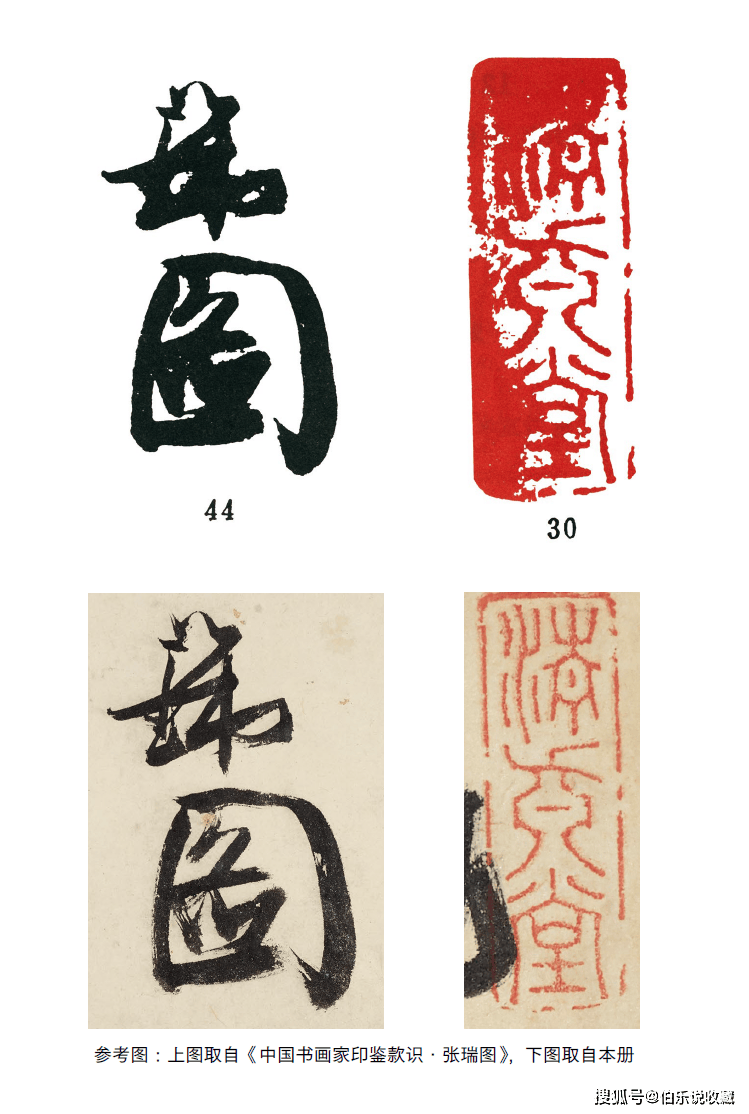 瑞
圖
44
30
瑞
圖
参考图：上图取自《中国书画家印鉴款识·张瑞图》，下图取自本册
搜狐号@伯乐说收藏